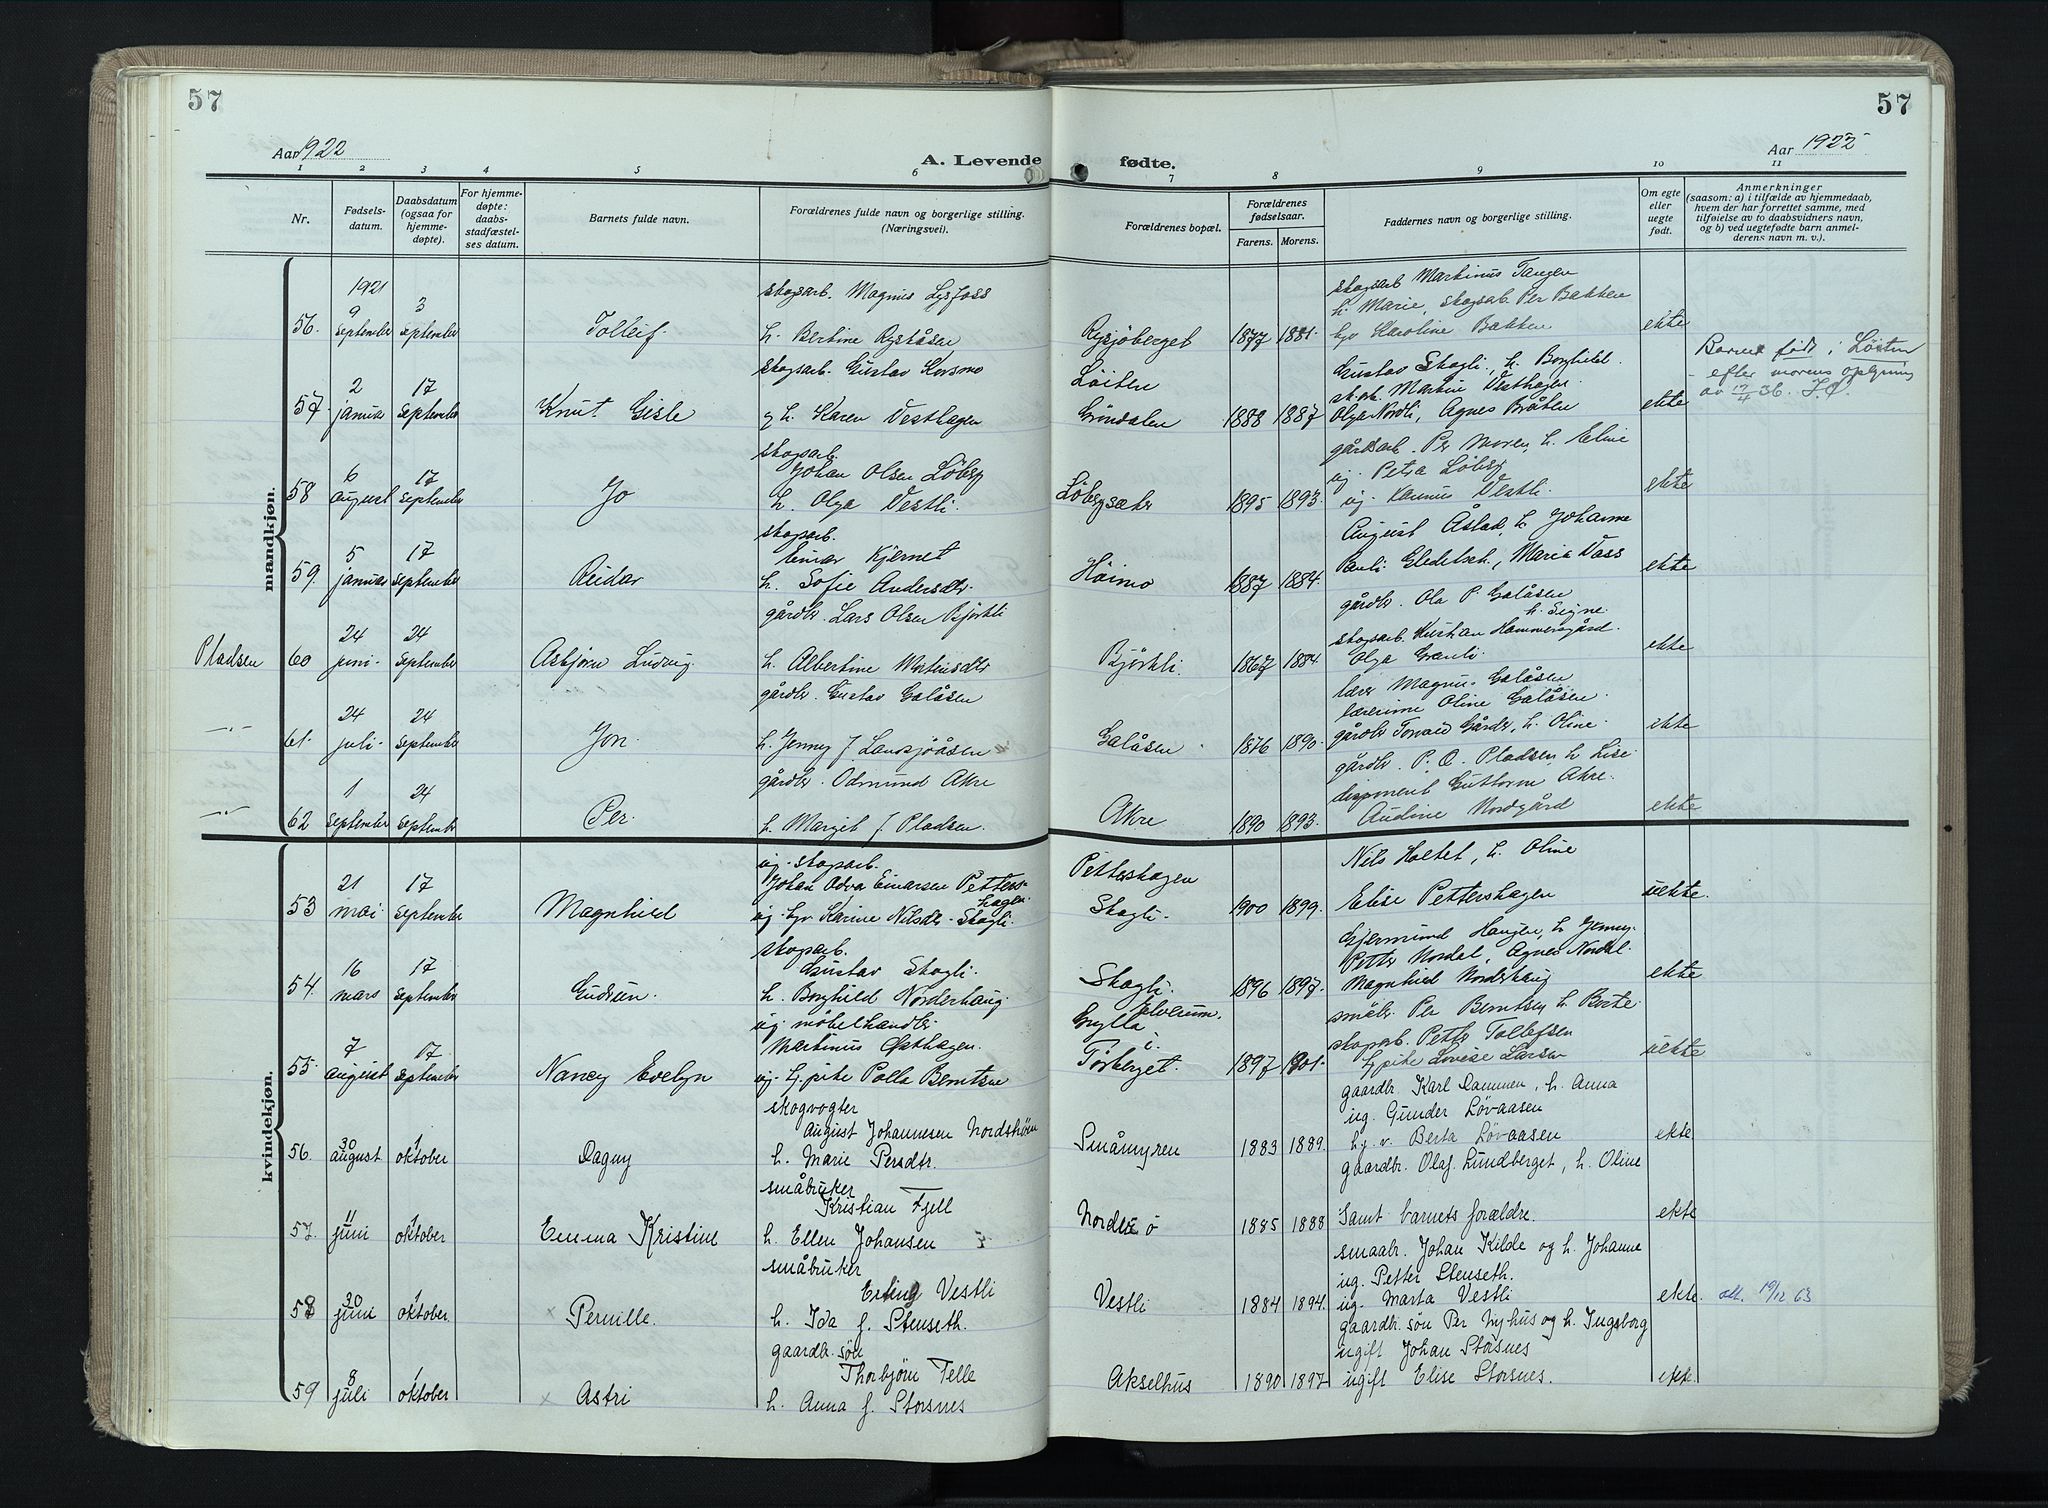 57
57
Aar 1922
A. Levende fødte.
Aar 1922
1 2 3 4 5 6 7 8 9 10 11
Nr.
Fødsels-
datum.
Daabsdatum
(ogsaa for
hjemme-
døpte).
For hjemme-
døpte:
daabs-
stadfæstel-
ses datum.
Barnets fulde navn.
Forældrenes fulde navn og borgerlige stilling.
(Næringsvei).
Forældrenes bopæl.
Forældrenes
fødselsaar.
Farens. Morens.
Faddernes navn og borgerlige stilling.
Om egte
eller
uegte
født.
Anmerkninger
(saasom: a) i tilfælde av hjemmedaab,
hvem der har forrettet samme, med
tilføielse av to daabsvidners navn,
og b) ved uegtefødte barn anmel-
derens navn m. v.).
mandkjøn.
1921
56. 9 september 3 september Tolleif.
skogsarb. Magnus Lysfoss
h. Bertine Ryståsen
Rysjøberget 1877 1881.
skogsarb Martinus Tangen
h. Marie, skogsab. Per Bakken
hv Karoline Bakken
ekte
57. 2 januar 17 september Knut Gisle
skogsarb. Gustav Korsmo
g h. Karen Vesthagen
Løiten
Grindalen 1888 1887
Gustav Skogli, h. Borghild
sk.arb. Martin Vesthagen.
Olga Nordli, Agnes Bråten
ekte
Barnet født i Løiten
efter morens oplysning
av 17/4 36. J.Ø.
58 6 august 17 september Jo
skogsarb.
Johan Olsen Løberg
h. Olga Vestli.
Løbergsæter 1895 1893.
gårdsarb. Per Moren, h. Eline
ug. Petra Løberg
ug. Rasmus Vestli.
ekte
59. 5 januar 17 september Reidar
skogsarb.
Einar Kjernet
h. Sofie Andersdtr.
Høimo 1887 1884.
August Åstad, h. Johanne
Pauli Gleditsch, Maria Vass
ekte
Pladsen
60 24 juni 24 september Asbjørn Ludvig
gårdbr. Lars Olsen Bjørkli
h. Albertine Mortensdtr
Bjørkli 1867 1884
gårdbr. Ola P. Galåsen
h. Signe.
skogsarb. Kristian Hammersgård.
Olga Granli.
ekte
-"-
61. 24 juli 24 september Jon.
gårdbr. Gustav Galåsen
h. Jenny f. Landsjøåsen
Galåsen 1876 1890.
lærer Magnus Galåsen
lærerinne Oline Galåsen.
gårdbr Torvald Gårder, h. Oline.
ekte
-"-
62 1 september 24 september Per.
gårdbr. Odmund Akre
h. Margit f. Pladsen.
Akre 1890 1893.
gårdbr. P. O. Pladsen h Lise.
disponent Guttorm Akre.
Audine Nordgård
ekte
kvindekjøn.
53 21 mai 17 september Magnhild
ug. skogsarb.
Johan Edvart Einarsen Petters-
hagen
ug. hv Karine Nilsdtr Skogli.
Pettershagen
Skogli. 1900 1899.
Nils Holtet, h. Oline
Elise Pettershagen
uekte
54. 16 mars 17 september Gudrun.
skogsarb.
Gustav Skogli.
h. Borghild Norderhaug.
Skogli. 1896 1897.
Gjermund Haugen, h. Jenny.
Petter Nordal, Agnes Nordal.
Magnhild Norderhaug
ekte
55. 7 august 17 september Nancy Evelyn
ug. møbelhandler
Martinus Østhagen.
ug. hj.pike Polla Berntsen
Elverum.
Grylla
i.
Tørberget. 1897 1901.
småbr. Per Berntsen h. Berte
skogsarb. Petter Tollefsen
hj.pike Lovise Larsen
uekte
56. 30 august 1 oktober Dagny
skogvogter
August Johannesen Nordstrøm
h. Marie Persdtr.
Småmyren 1883 1889.
gaardbr Karl Dammen, h. Anna
ug. Gunder Løvaasen
hj. v. Berta Løvaasen
gaardbr. Olaf Lundberget, h. Oline
ekte
57. 11 juni 1 oktober Emma Kristine
småbruker
Kristian Fjell
h. Ellen Johansen
Nordsjø 1885 1888
Samt barnets forældre.
ekte
58 30 juni 1 oktober. x Pernille.
småbruker
Erling Vestli
h. Ida f. Stenseth.
Vestli 1884 1894.
smaabr. Johan Kilde og h. Johanne
ug. Petter Stenseth.
ug. Marta Vestli
ekte. att. 19/12 63
59 8 juli 1 oktober x Astri
gaardbr.søn
Thorbjørn Telle
h. Anna f. Storsnes
Akselhus 1890 1897
gaardbr.søn Per Nyhus og h. Ingeborg
ugift Johan Storsnes
ugift Elise Storsnes.
ekte.